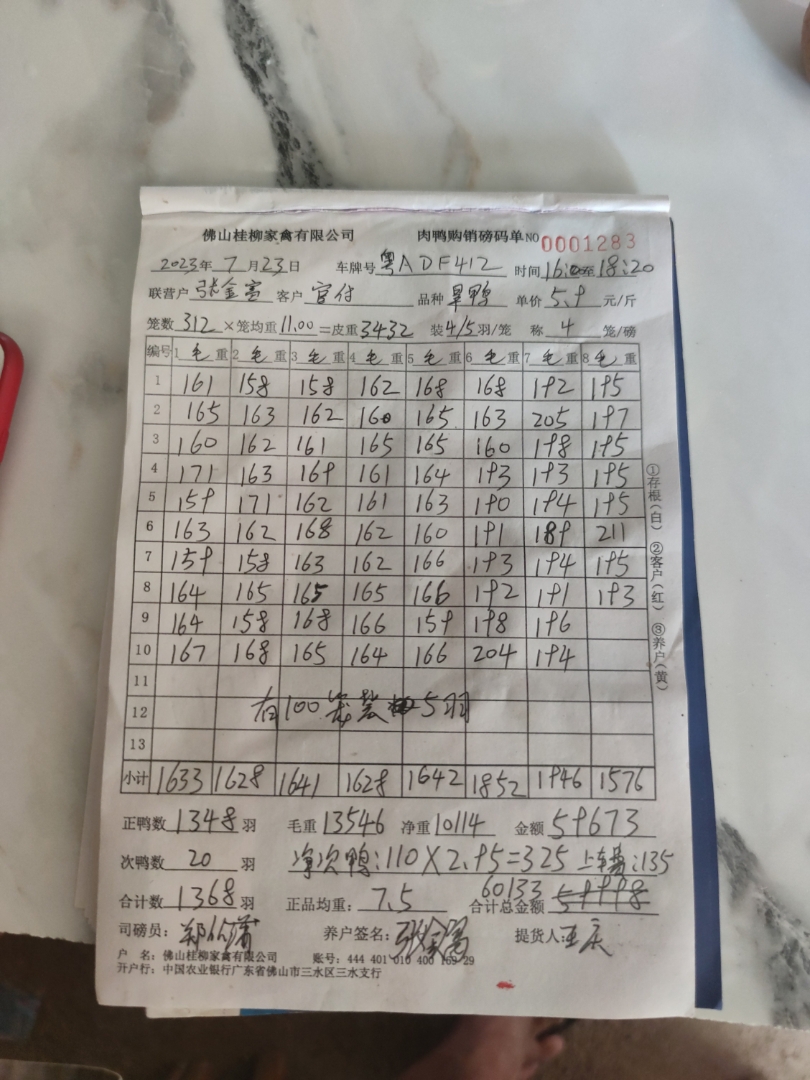 佛山桂柳家禽有限公司 肉鸭购销磅码单 NO 0001283
2023年 7月 23日 车牌号 粤ADF412 时间 16:0至18:20
联营户 张金富 客户 官付 品种 旱鸭 单价 5.9 元/斤
笼数 312 ×笼均重 11.00 =皮重 3432 装 4/5 羽/笼 称 4 笼/磅
编号 1毛重 2毛重 3毛重 4毛重 5毛重 6毛重 7毛重 8毛重
1 161 158 158 162 168 168 192 195
2 165 163 162 160 165 163 205 197
3 160 162 161 165 165 160 198 195
4 171 163 169 161 164 193 193 195
5 159 171 162 161 163 190 194 195
6 163 162 168 162 160 191 189 211
7 159 158 163 162 166 193 194 195
8 164 165 165 165 166 192 191 193
9 164 158 168 166 159 198 196
10 167 168 165 164 166 204 194
11
12 有100笼装5羽
13
小计 1633 1628 1641 1628 1642 1852 1946 1576
正鸭数 1348 羽 毛重 13546 净重 10114 金额 59673
次鸭数 20 羽 净次鸭:110×2.95=325 上车费:135
合计数 1368 羽 正品均重: 7.5 合计总金额 59998 60133
司磅员: 养户签名: 提货人: 王庆
户 名:佛山桂柳家禽有限公司 账号:444 401 010 400 169 29
开户行:中国农业银行广东省佛山市三水区三水支行
①存根(白) ②客户(红) ③养户(黄)